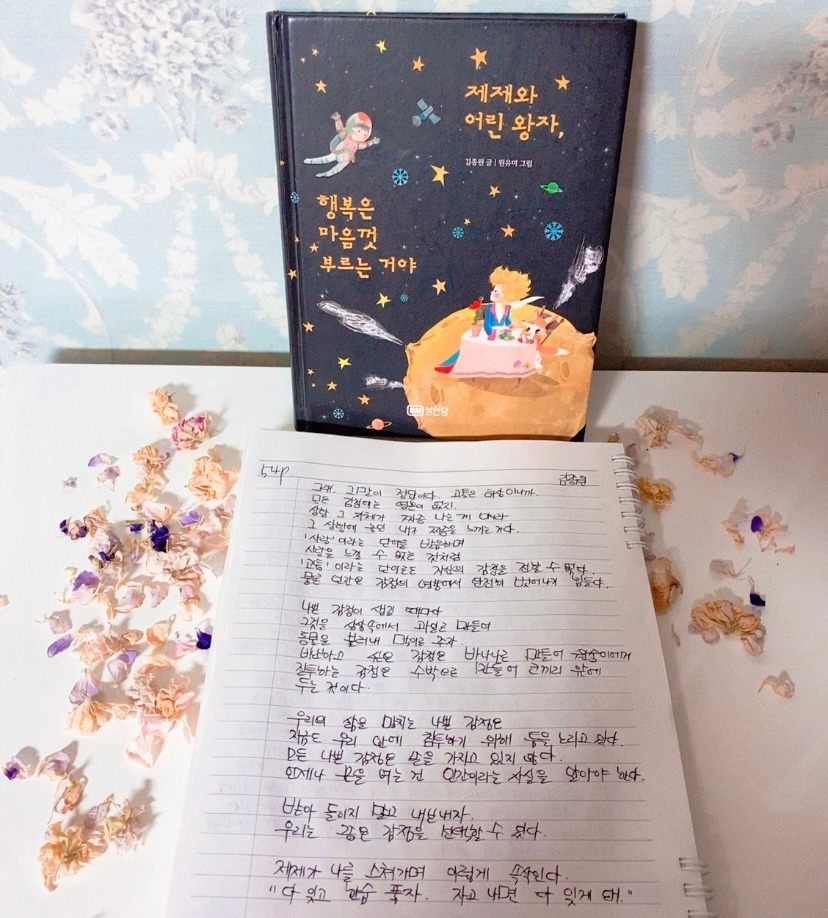 제제와
어린 왕자,
김종원 글 | 원유미 그림
행복은
마음껏
부르는 거야
BM 성안당
54P
김종원
그래. 그것이 정답이다. 고통은 허상이니까.
모든 감정에는 영혼이 없지.
상황 그 자체가 짜증 나는 게 아니라
그 상황에 놓인 내가 짜증을 느끼는 거다.
'사랑'이라는 단어를 발음하며
사랑을 느낄 수 없는 것처럼
'고통'이라는 단어로도 자신의 감정을 전할 수 없다.
물론 인간은 감정의 영향에서 완전히 벗어나기 힘들다.
나쁜 감정이 생길 때마다
그것을 상상속에서 과일로 만들어
동물을 불러내 먹이로 주자.
비난하고 싶은 감정은 바나나로 만들어 원숭이에게
질투하는 감정은 수박으로 만들어 코끼리 앞에
두는 것이다.
우리의 삶을 망치는 나쁜 감정은
지금도 우리 안에 침투하기 위해 틈을 노리고 있다.
모든 나쁜 감정은 손을 가지고 있지 않다.
언제나 문을 여는 건 인간이라는 사실을 알아야 한다.
받아 들이지 말고 내보내자.
우리는 좋은 감정을 선택할 수 있다.
제제가 나를 스쳐가며 이렇게 속삭인다.
"다 잊고 한숨 푹자. 자고 나면 다 잊게 돼."